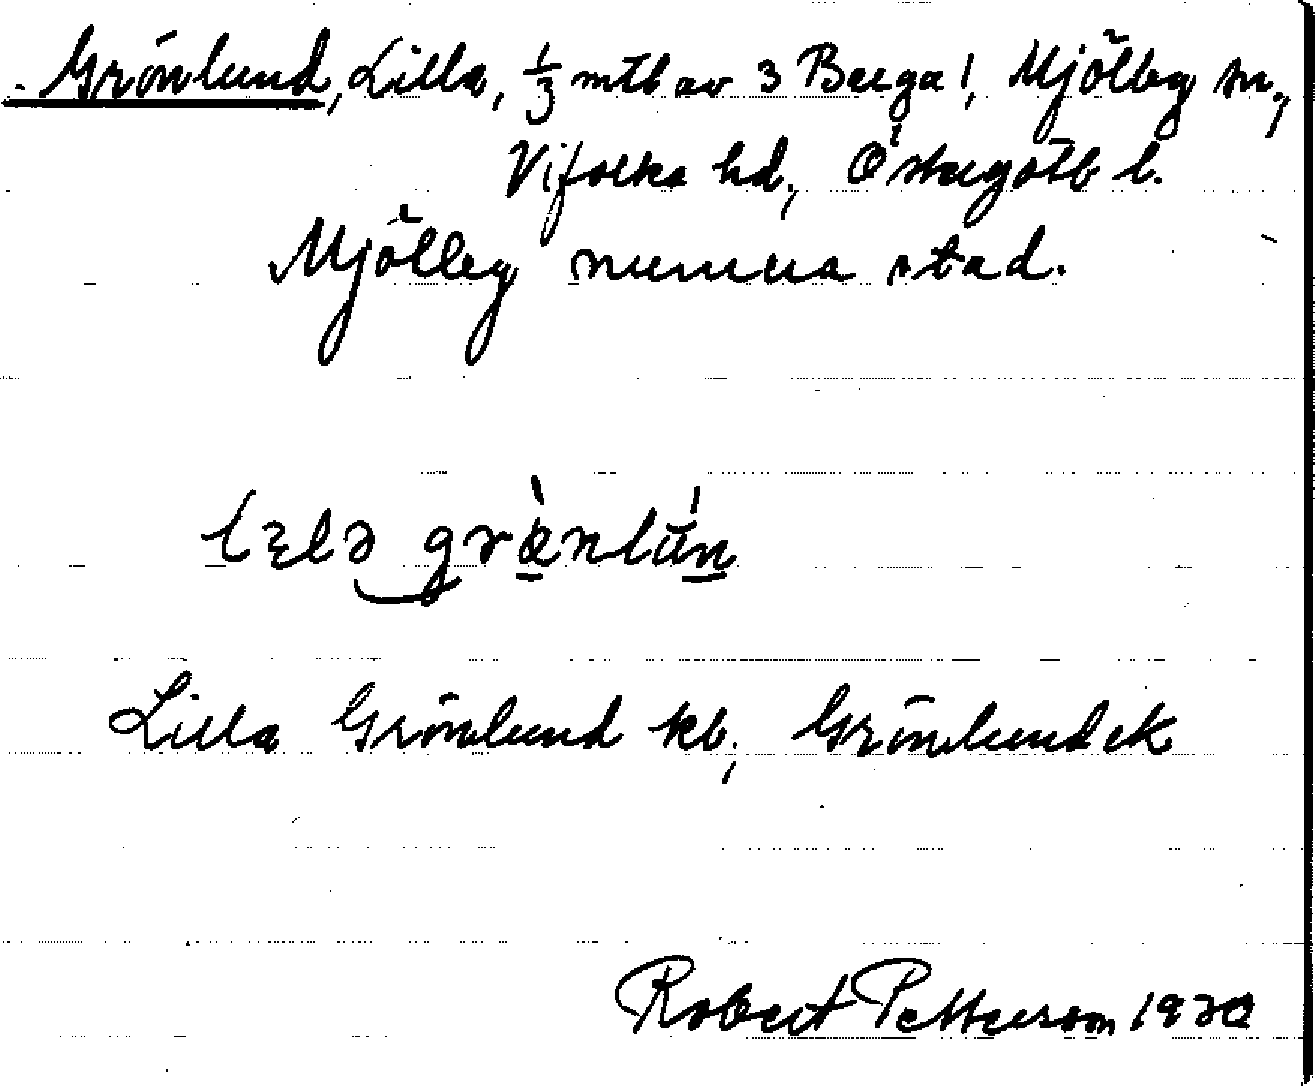 Grönlund, Lilla, 1/3 mtl av 3 Berga!, Mjölby sn,
Vifolka hd, Östergötl l.
Mjölby numera stad.
Lilla Grönlund kb, Grönlund ek
Robert Petterson